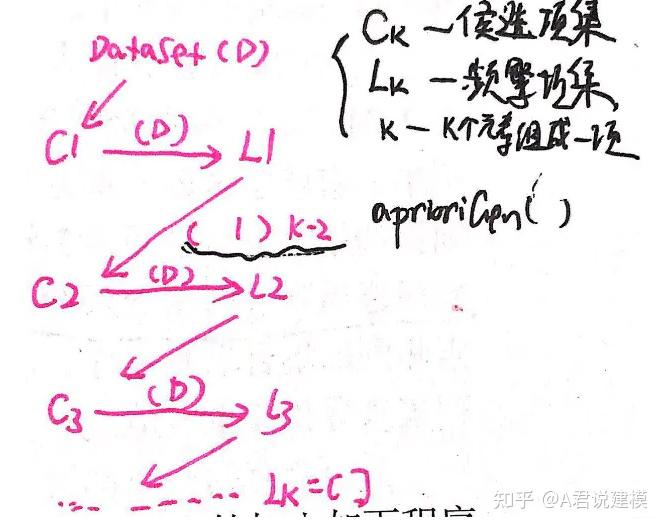 Dataset (D)
CK — 候选项集
LK — 频繁项集
K — K个元素组成一项
C1 (D) L1
aprioriGen( )
( | ) K-2
C2 (D) L2
C3 (D) L3
LK=[]
知乎 @A君说建模